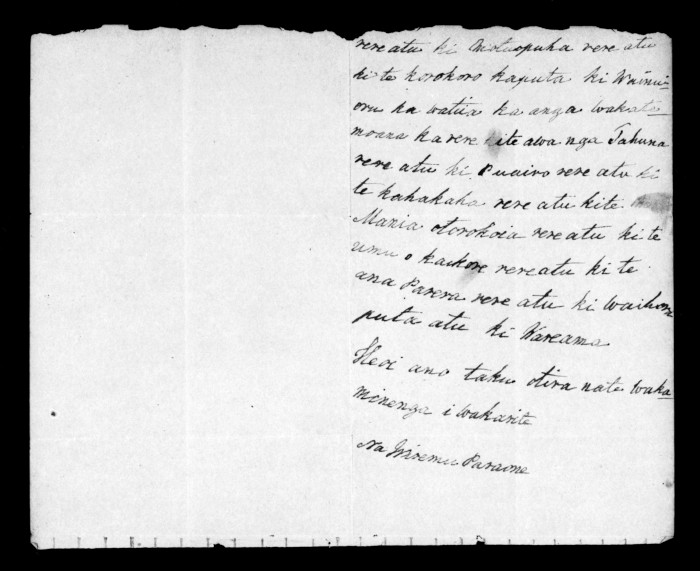 rere atu ki Motuopuha rere atu
ki te korokoro kaputa ki Wainui-
oru ka watiia ka anga wakate-
moana ka rere ki te awa nga Tahuna
rere atu ki Puairo rere atu ki
te kahakaha rere atu kite
Mania otorokoia rere atu ki te
umu o kaikore rere atu ki te
ana Parera rere atu ki Waihoru
puta atu ki Wareama
Heoi ano taku otira nate waka-
minenga i wakarite
Na Wiremu Paraone